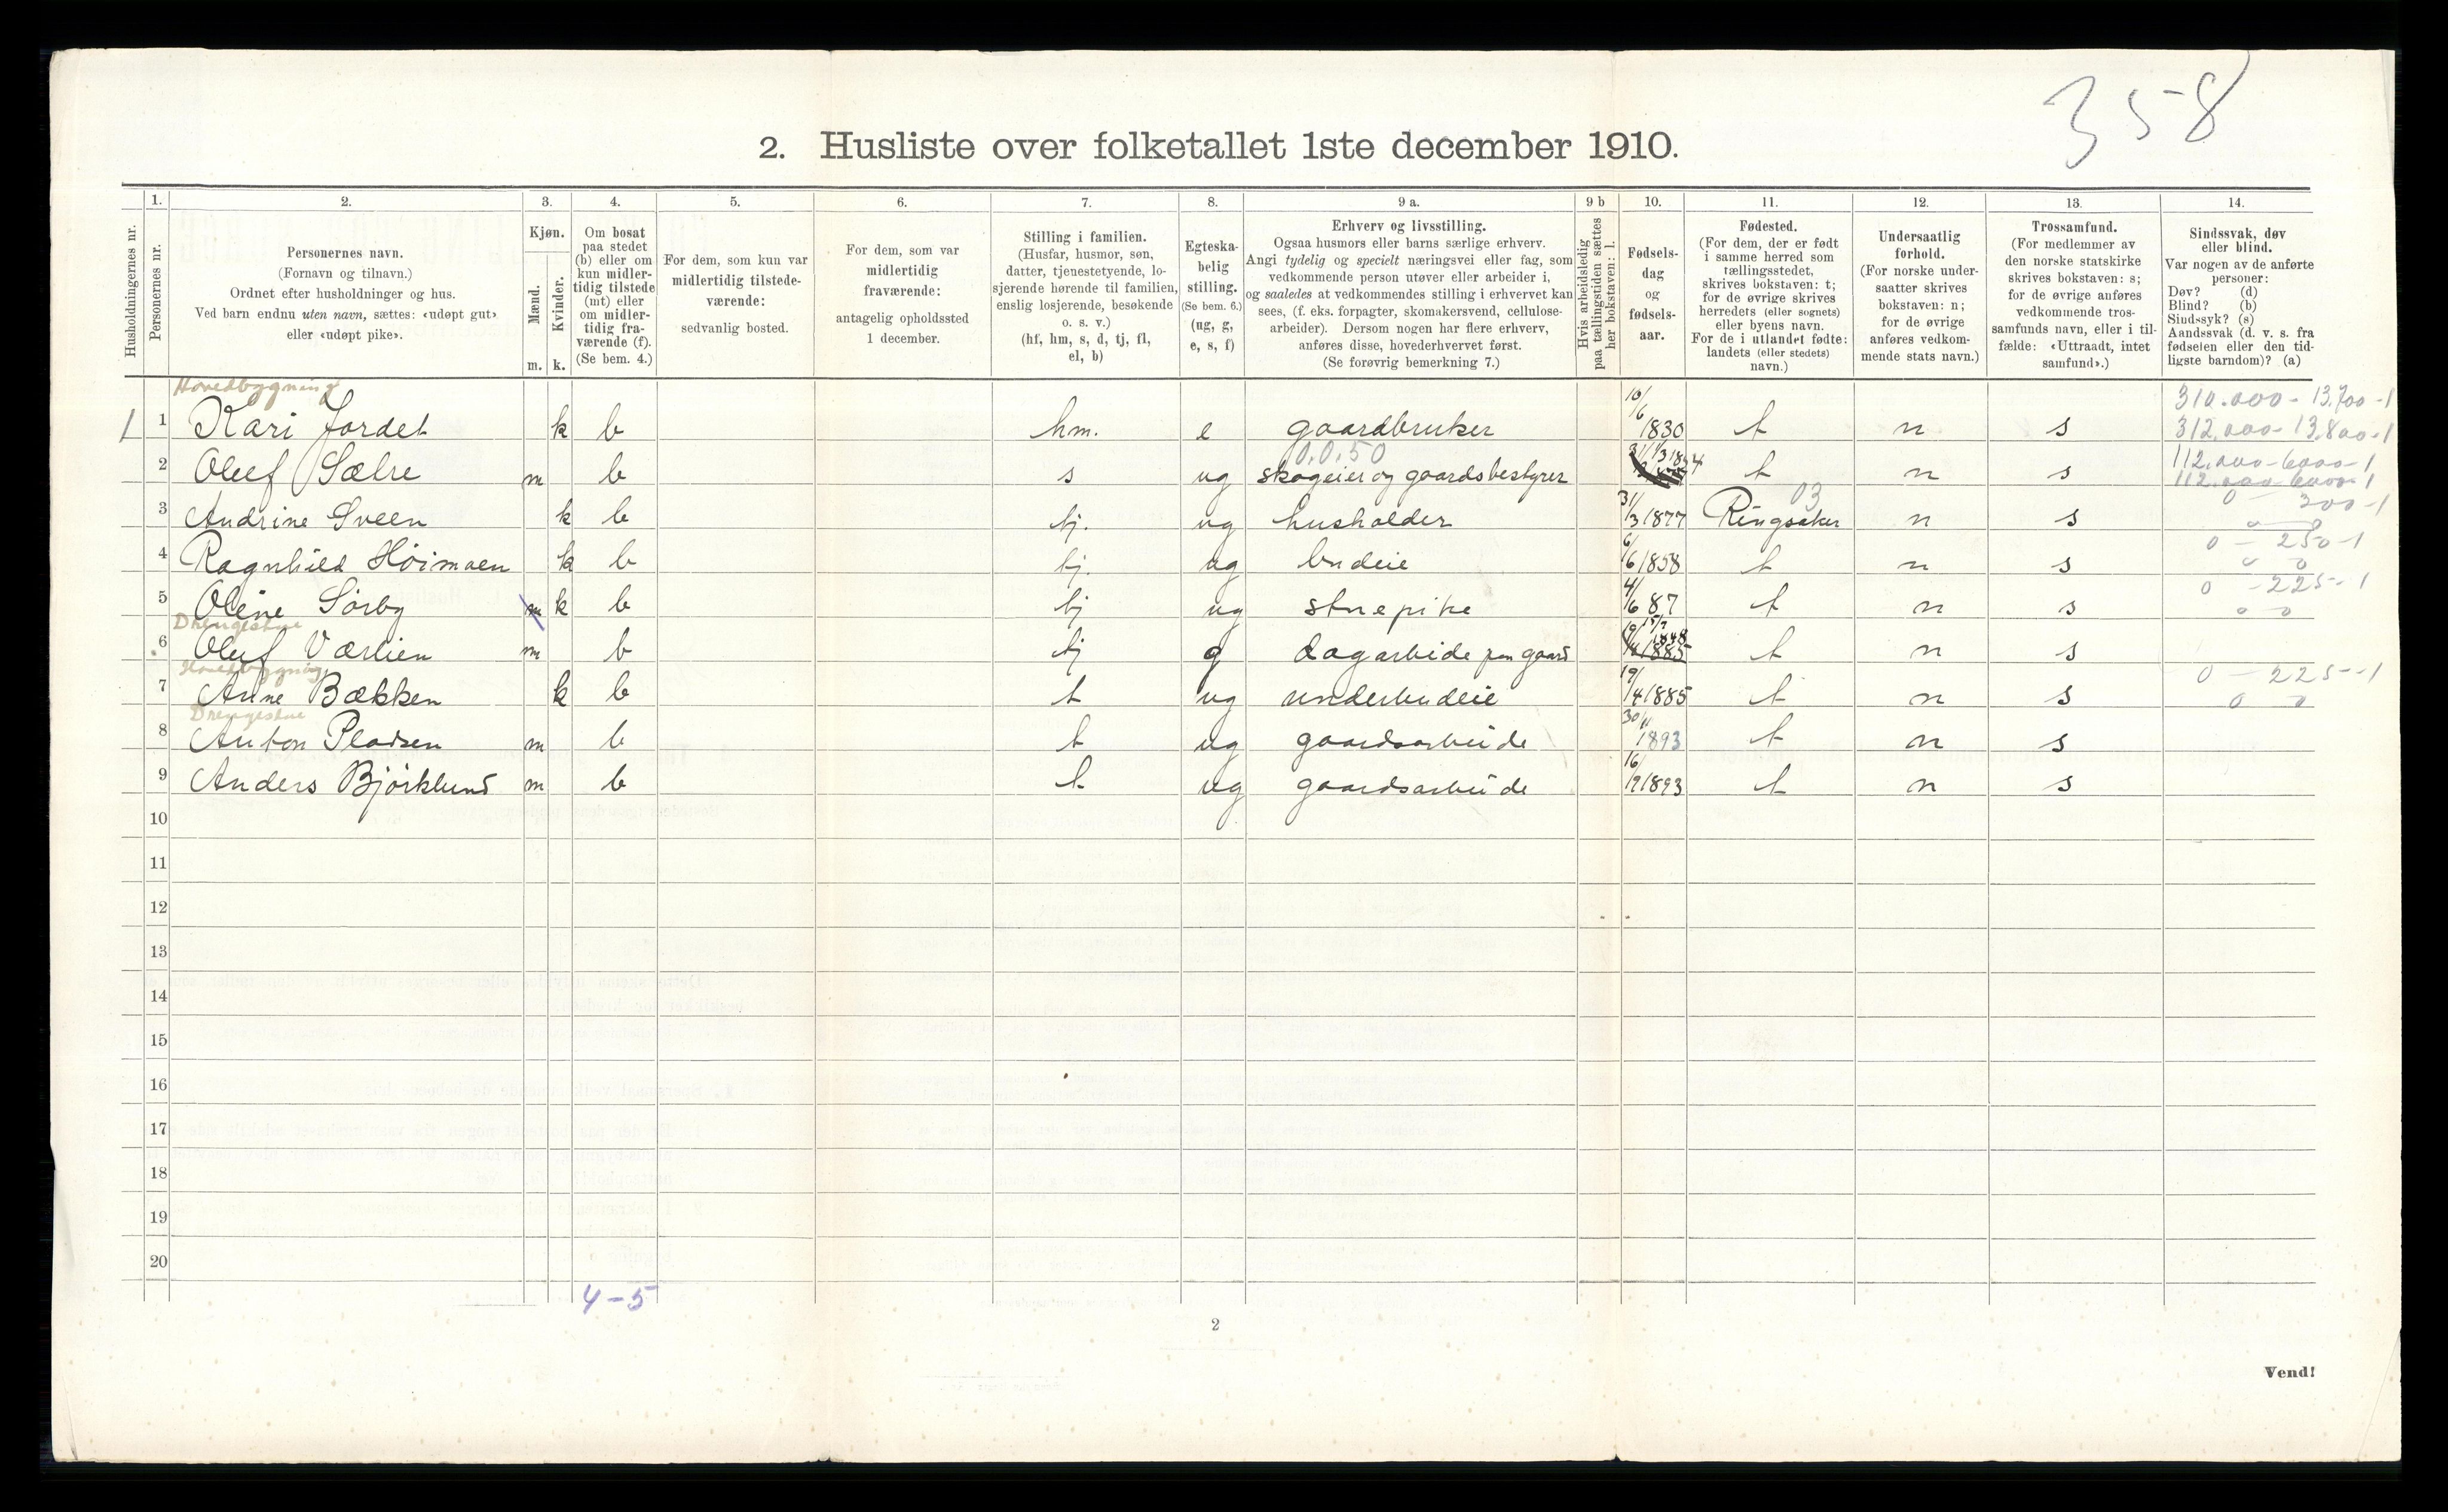 358
2. Husliste over folketallet 1ste december 1910.
Husholdningernes nr.
1. Personernes nr.
2. Personernes navn. (Fornavn og tilnavn.) Ordnet efter husholdninger og hus. Ved barn endnu uten navn, sættes: «udøpt gut» eller «udøpt pike».
3. Kjøn. Mænd. m. Kvinder. k.
4. Om bosat paa stedet (b) eller om kun midlertidig tilstede (mt) eller om midlertidig fraværende (f). (Se bem. 4.)
5. For dem, som kun var midlertidig tilstedeværende: sedvanlig bosted.
6. For dem, som var midlertidig fraværende: antagelig opholdssted 1 december.
7. Stilling i familien. (Husfar, husmor, søn, datter, tjenestetyende, losjerende hørende til familien, enslig losjerende, besøkende o. s. v.) (hf, hm, s, d, tj, fl, el, b)
8. Egteskabelig stilling. (Se bem. 6.) (ug, g, e, s, f)
9 a. Erhverv og livsstilling. Ogsaa husmors eller barns særlige erhverv. Angi tydelig og specielt næringsvei eller fag, som vedkommende person utøver eller arbeider i, og saaledes at vedkommendes stilling i erhvervet kan sees, (f. eks. forpagter, skomakersvend, cellulosearbeider). Dersom nogen har flere erhverv, anføres disse, hovederhvervet først. (Se forøvrig bemerkning 7.)
9 b Hvis arbeidsledig paa tællingstiden sættes her bokstaven: l.
10. Fødselsdag og fødselsaar.
11. Fødested. (For dem, der er født i samme herred som tællingsstedet, skrives bokstaven: t; for de øvrige skrives herredets (eller sognets) eller byens navn. For de i utlandet fødte: landets (eller stedets) navn.)
12. Undersaatlig forhold. (For norske undersaatter skrives bokstaven: n; for de øvrige anføres vedkommende stats navn.)
13. Trossamfund. (For medlemmer av den norske statskirke skrives bokstaven: s; for de øvrige anføres vedkommende trossamfunds navn, eller i tilfælde: «Uttraadt, intet samfund».)
14. Sindssvak, døv eller blind. Var nogen av de anførte personer: Døv? (d) Blind? (b) Sindssyk? (s) Aandssvak (d. v. s. fra fødselen eller den tidligste barndom)? (a)
Hovedbygning 310.000 - 13.700 - 1
1 1 Kari Jordet k b hm. e gaardbruker 10/6 1830 t n s 312.000 - 13.800 - 1
0.0.50 112.000 - 6000 - 1
2 Oluf Sælre m b s ug skogeier og gaardsbestyrer t n s 112.000 - 6000 - 1
03 0 - 300 - 1
3 Andrine Sveen k b tj. ug husholder 31/3 1877 Ringsaker n s 0 0
0 - 250 - 1
4 Ragnhild Høimoen k b tj. ug budeie 6/6 1858 t n s 0 0
0 - 225 - 1
5 Oline Sørby m k b tj ug stuepike 4/6 87 t n s 0 0
Drengestue
6 Oluf Værlien m b tj g dagarbeide paa gaard 1885 15/7 1848 t n s
Hovedbygning 0 - 225 - 1
7 Anne Bækken k b t ug underbudeie 19/4 1885 t n s 0 0
Drengestue
8 Anton Pladsen m b t ug gaardsarbeide 30/11 1893 t n s
9 Anders Bjørklund m b t ug gaardsarbeide 16/9 1893 t n s
10
11
12
13
14
15
16
17
18
19
20
4-5
2
Vend!